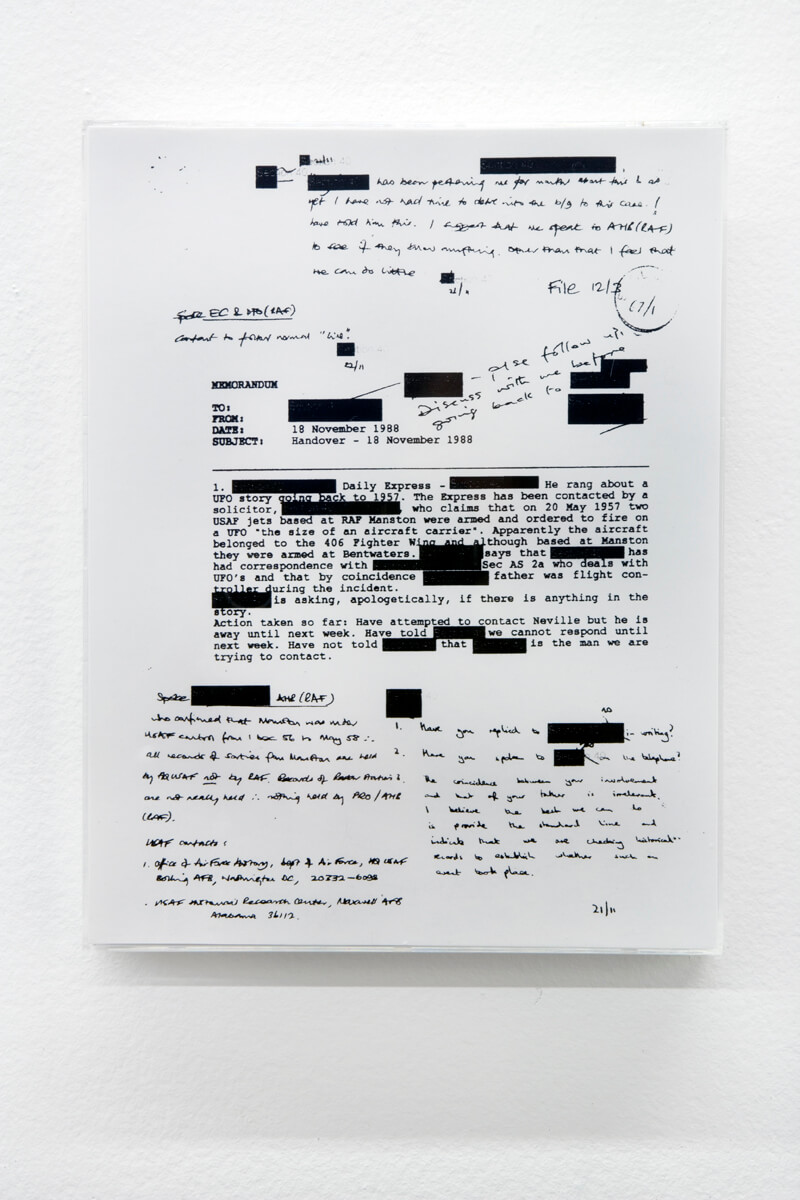 22/11
has been pestering me for months about this & as
yet I have not had time to delve into the b/g to this case. I
have told him this. I suggest that we speak to AHB (RAF)
to see if they know anything. Other than that I feel that
we can do little
File 12/3
17/1
EC & (RAF)
Content to follow normal "line".
22/11
- please follow up.
Discuss with me before
going back to
MEMORANDUM
TO:
FROM:
DATE: 18 November 1988
SUBJECT: Handover - 18 November 1988
1. Daily Express - He rang about a
UFO story going back to 1957. The Express has been contacted by a
solicitor, , who claims that on 20 May 1957 two
USAF jets based at RAF Manston were armed and ordered to fire on
a UFO "the size of an aircraft carrier". Apparently the aircraft
belonged to the 406 Fighter Wing and although based at Manston
they were armed at Bentwaters. says that has
had correspondence with Sec AS 2a who deals with
UFO's and that by coincidence father was flight con-
troller during the incident.
is asking, apologetically, if there is anything in the
story.
Action taken so far: Have attempted to contact Neville but he is
away until next week. Have told we cannot respond until
next week. Have not told that is the man we are
trying to contact.
Spoke AHB (RAF)
who confirmed that Manston was under
USAF control from 1 Dec 56 to May 58 ∴
all records of sorties from Manston are held
by HQ USAF not by RAF. Records of
are not held ∴ nothing held by PRO / AHB
(RAF).
USAF contacts :
1. Office of Air Force History, Dept of Air Force, HQ USAF
Bolling AFB, Washington DC, 20332-6098
. USAF Historical Research Center, Maxwell AFB
Alabama 36112.
no
1. Have you replied to in writing?
2. Have you spoken to on the telephone?
The coincidence between your involvement
and that of your father is irrelevant.
I believe the best we can do
is provide the standard line and
indicate that we are checking historical
records to establish whether such an
event took place.
21/11